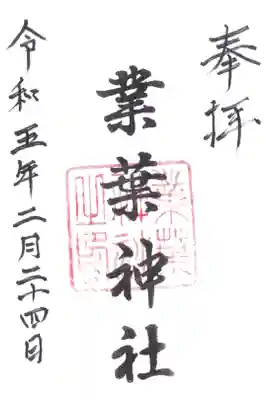 奉拝
業葉神社
令和五年二月二十四日